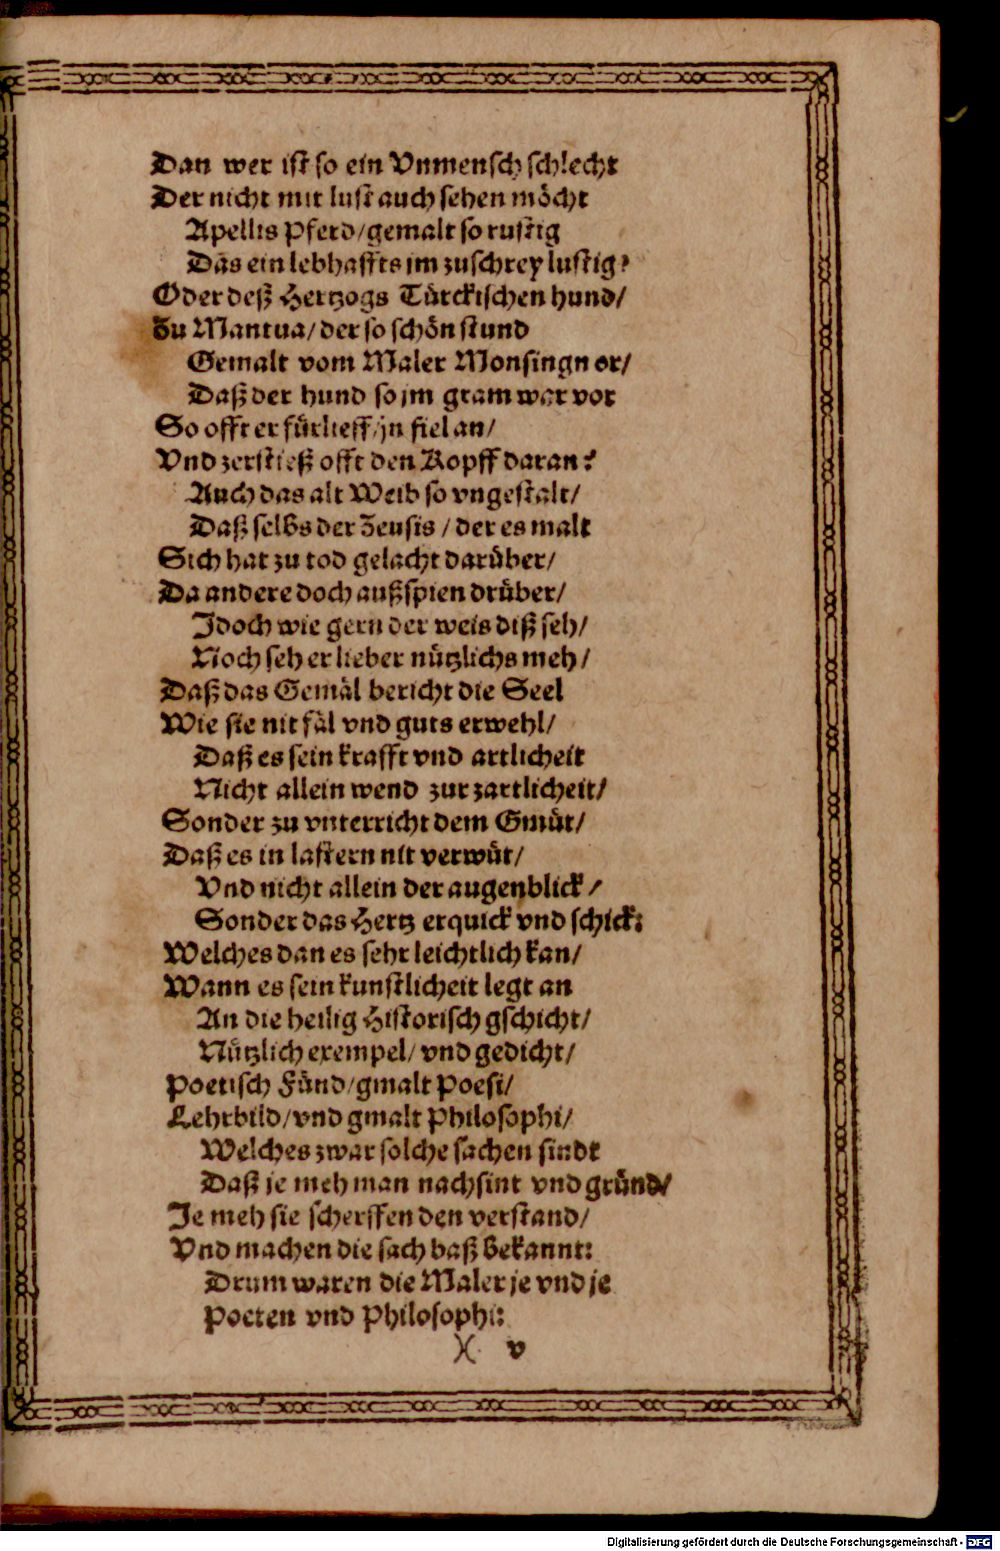 Dan wer ist so ein Vnmensch schlecht
Der nicht mit lust auch sehen möcht
Apellis Pferd/gemalt so rustig
Das ein lebhaffts im zuschrey lustig?
Oder deß Hertzogs Türckischen hund/
Zu Mantua/der so schön stund
Gemalt vom Maler Monsingnor/
Daß der hund so jm gram war vor
So offt er fürlieff/jn fiel an/
Vnd zerstieß offt den Kopff daran?
Auch das alt Weib so vngestalt/
Daß selbs der Zeusis / der es malt
Sich hat zu tod gelacht darüber/
Da andere doch außspien drüber/
Jdoch wie gern der weis diß seh/
Noch seh er lieber nützlichs meh/
Daß das Gemäl bericht die Seel
Wie sie nit fäl vnd guts erwehl/
Daß es sein krafft vnd artlicheit
Nicht allein wend zur zartlicheit/
Sonder zu vnterricht dem Gmüt/
Daß es in lastern nit verwüt/
Vnd nicht allein der augenblick/
Sonder das Hertz erquick vnd schick:
Welches dan es sehr leichtlich kan/
Wann es sein kunstlicheit legt an
An die heilig Historisch gschicht/
Nützlich exempel/ vnd gedicht/
Poetisch Fünd/gmalt Poesi/
Lehrbild/vnd gmalt Philosophi/
Welches zwar solche sachen sindt
Daß je meh man nachsint vnd gründ/
Je meh sie scherffen den verstand/
Vnd machen die sach baß bekannt:
Drum waren die Maler je vnd je
Poeten vnd Philosophi:
)( v
Digitalisierung gefördert durch die Deutsche Forschungsgemeinschaft - DFG